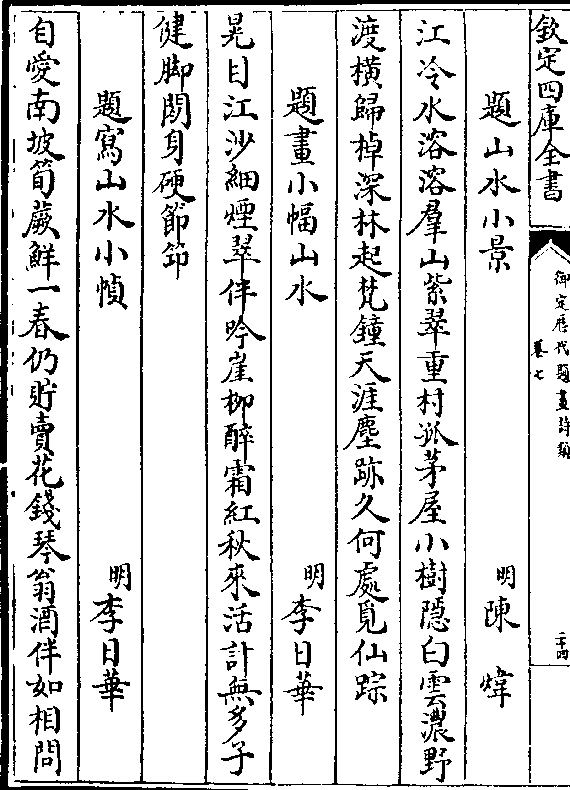 欽定四庫全書
御定歷代題畫詩類
卷七
二十四
題山水小景 明 陳 煒
江冷水溶溶羣山紫翠重村孤茅屋小樹隱白雲濃野
渡橫歸棹深林起梵鐘天涯塵跡久何處覓仙踪
題畫小幅山水 明 李日華
晃目江沙細煙翠伴吟崖柳醉霜紅秋來活計無多子
健脚閒身硬節筇
題寫山水小幀 明 李日華
自愛南坡筍蕨鮮一春仍貯賣花錢琴翁酒伴如相問